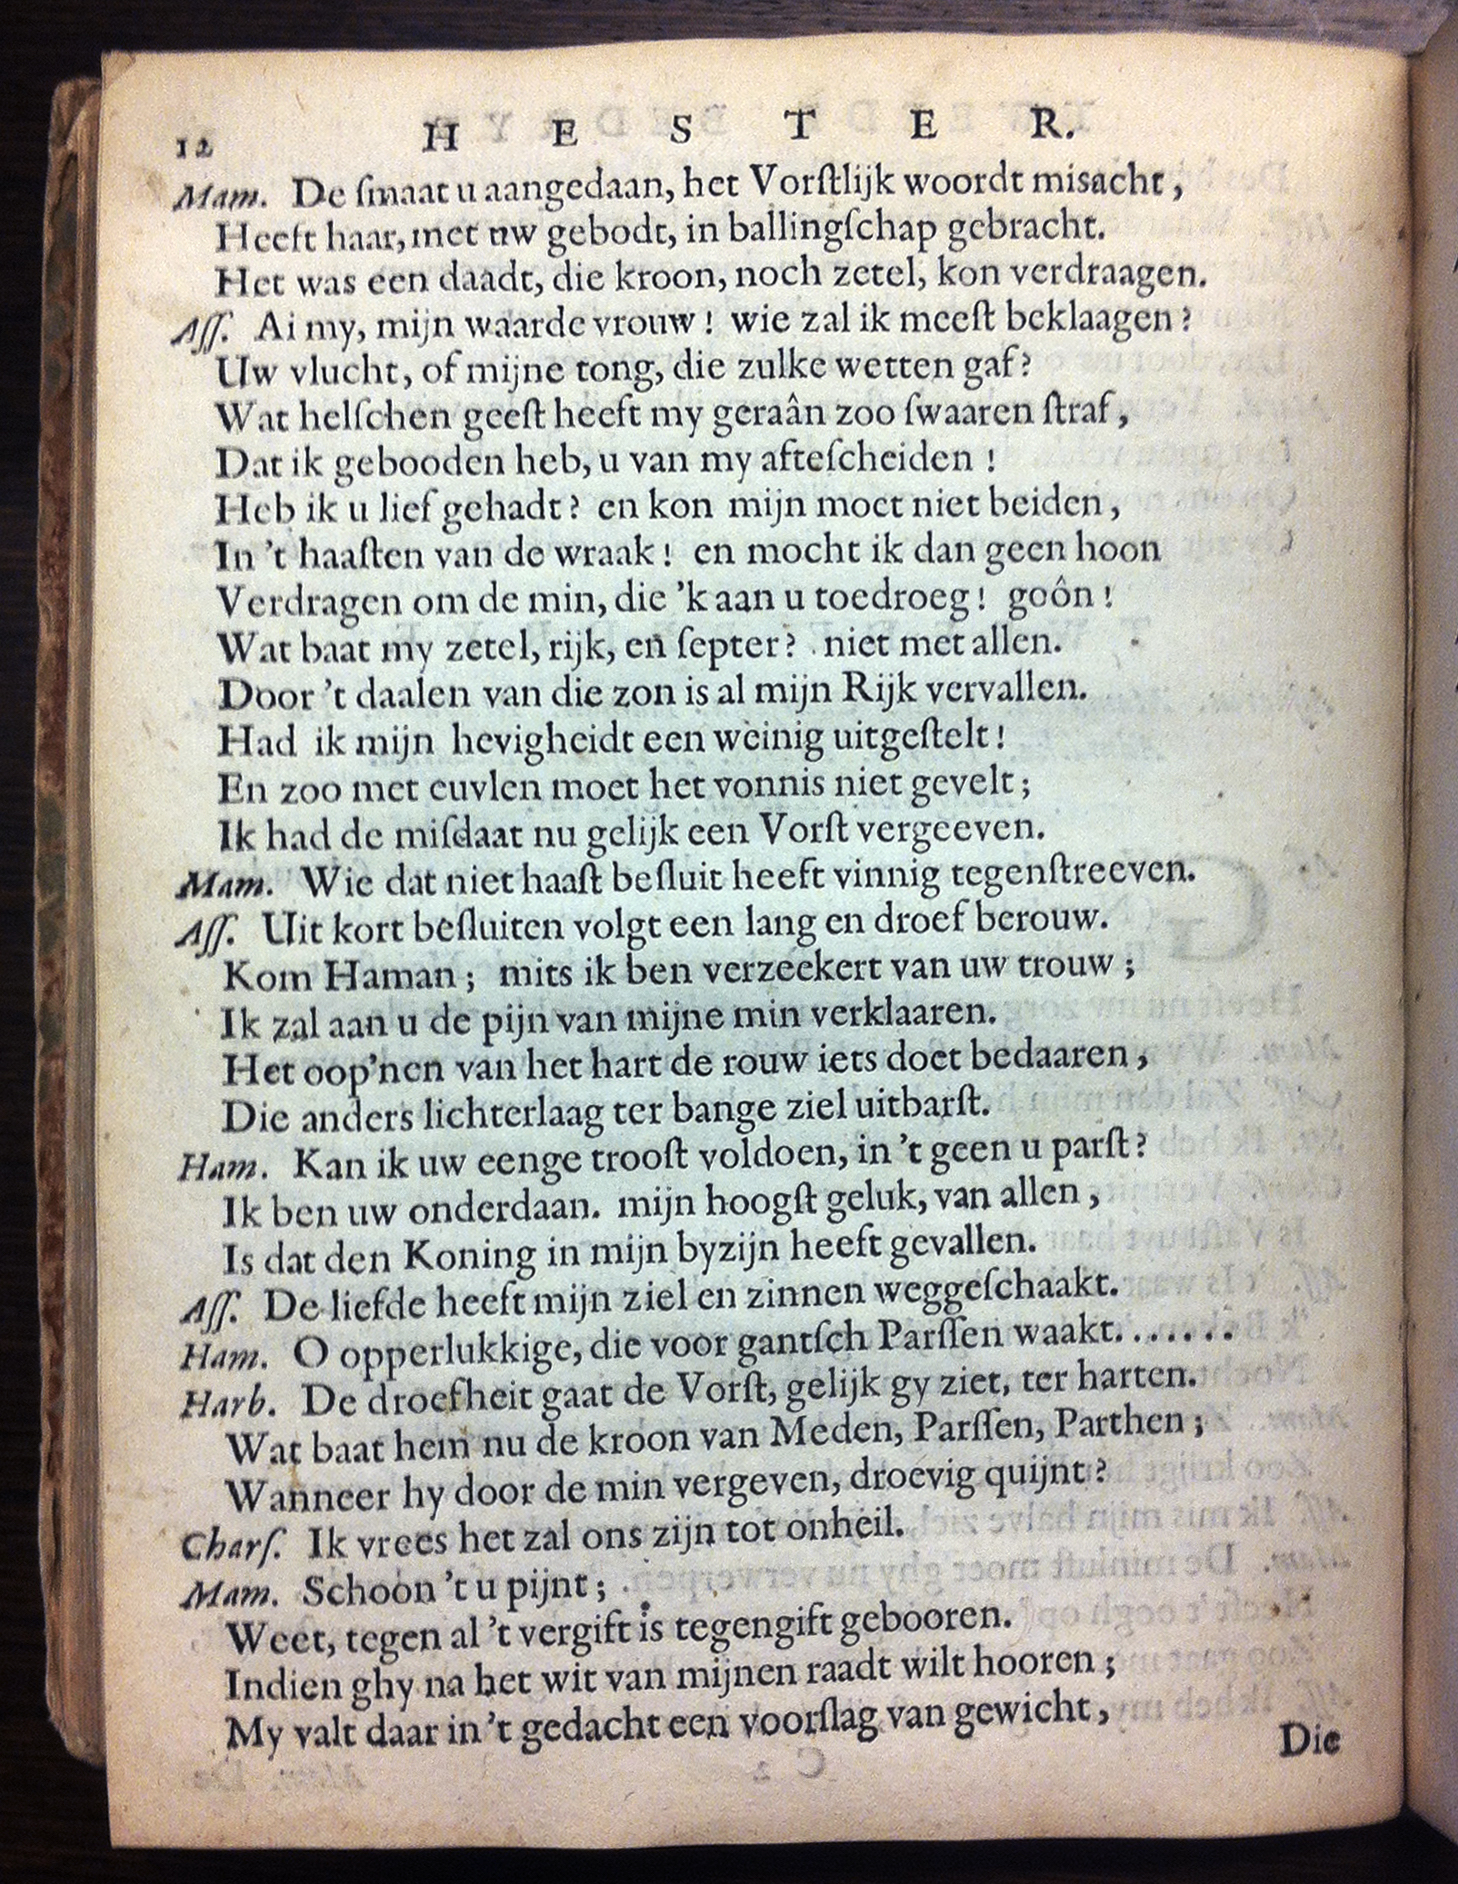 12 H E S T E R.
Mam. De ſmaat u aangedaan, het Vorſtlijk woordt misacht,
Heeft haar, met uw gebodt, in ballingſchap gebracht.
Het was een daadt, die kroon, noch zetel, kon verdraagen.
Aſſ. Ai my, mijn waarde vrouw! wie zal ik meeſt beklaagen?
Uw vlucht, of mijne tong, die zulke wetten gaf?
Wat helſchen geeſt heeft my geraân zoo ſwaaren ſtraf,
Dat ik gebooden heb, u van my afteſcheiden!
Heb ik u lief gehadt? en kon mijn moet niet beiden,
In 't haaſten van de wraak! en mocht ik dan geen hoon
Verdragen om de min, die 'k aan u toedroeg! goôn!
Wat baat my zetel, rijk, en ſepter? niet met allen.
Door 't daalen van die zon is al mijn Rijk vervallen.
Had ik mijn hevigheidt een weinig uitgeſtelt!
En zoo met euvlen moet het vonnis niet gevelt;
Ik had de miſdaat nu gelijk een Vorſt vergeeven.
Mam. Wie dat niet haaſt beſluit heeft vinnig tegenſtreeven.
Aſſ. Uit kort beſluiten volgt een lang en droef berouw.
Kom Haman; mits ik ben verzeekert van uw trouw;
Ik zal aan u de pijn van mijne min verklaaren.
Het oop'nen van het hart de rouw iets doet bedaaren,
Die anders lichterlaag ter bange ziel uitbarſt.
Ham. Kan ik uw eenge trooſt voldoen, in 't geen u parſt?
Ik ben uw onderdaan. mijn hoogſt geluk, van allen,
Is dat den Koning in mijn byzijn heeft gevallen.
Aſſ. De liefde heeft mijn ziel en zinnen weggeſchaakt.
Ham. O opperlukkige, die voor gantſch Parſſen waakt.......
Harb. De droefheit gaat de Vorſt, gelijk gy ziet, ter harten.
Wat baat hem nu de kroon van Meden, Parſſen, Parthen;
Wanneer hy door de min vergeven, droevig quijnt?
Charſ. Ik vrees het zal ons zijn tot onheil.
Mam. Schoon 't u pijnt;
Weet, tegen al 't vergift is tegengift gebooren.
Indien ghy na het wit van mijnen raadt wilt hooren;
My valt daar in 't gedacht een voorſlag van gewicht,
Die